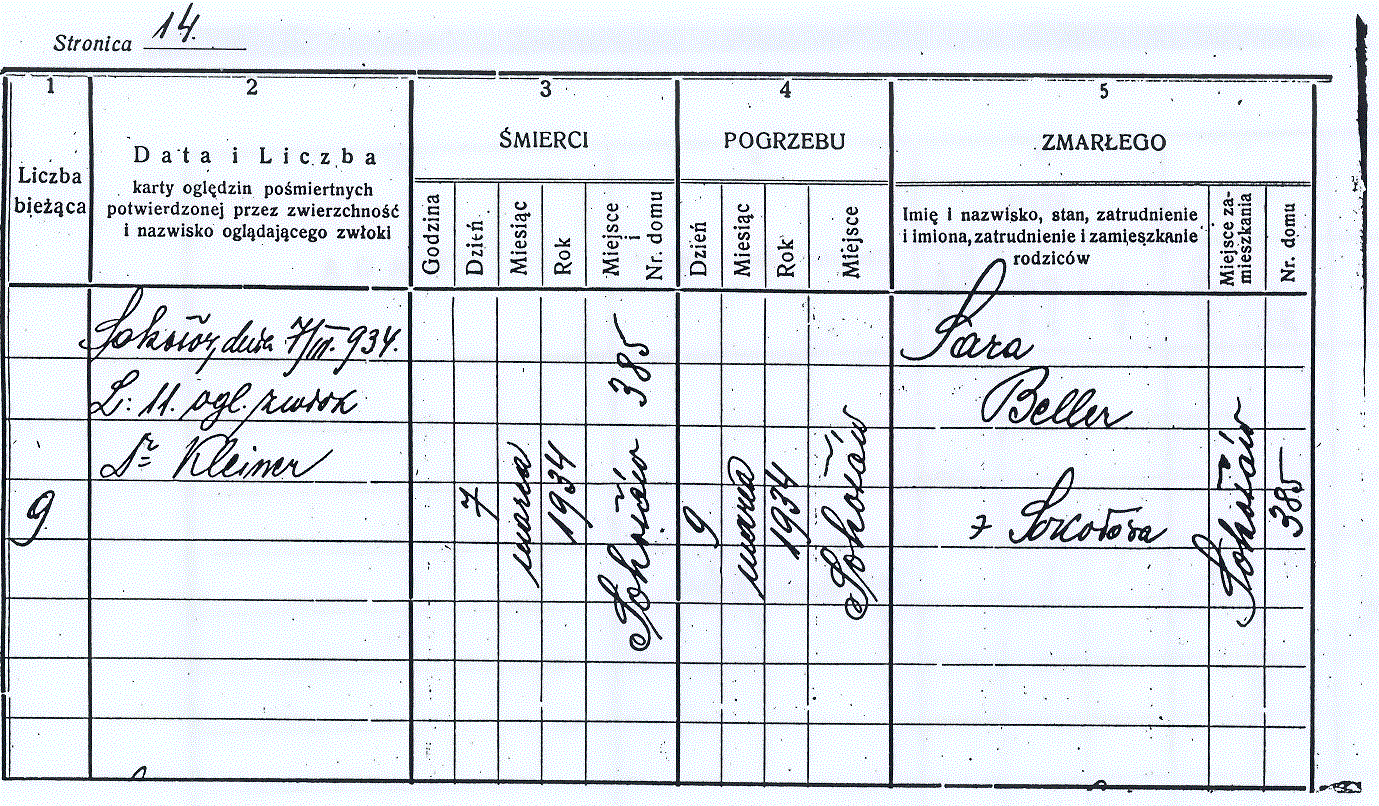 Stronica 14.
1 2 3 4 5
Liczba bieżąca
Data i Liczba
karty oględzin pośmiertnych
potwierdzonej przez zwierzchność
i nazwisko oglądającego zwłoki
ŚMIERCI
Godzina
Dzień
Miesiąc
Rok
Miejsce
i
Nr. domu
POGRZEBU
Dzień
Miesiąc
Rok
Miejsce
ZMARŁEGO
Imię i nazwisko, stan, zatrudnienie
i imiona, zatrudnienie i zamieszkanie
rodziców
Miejsce za-
mieszkania
Nr. domu
9
dnia 7/III. 934.
L: 11. ogl. zwłok
Dr Kleiner
7
marca
1934
Sokołów 385
9
marca
1934
Sokołów
Sara
Beller
z
Sokołów
385